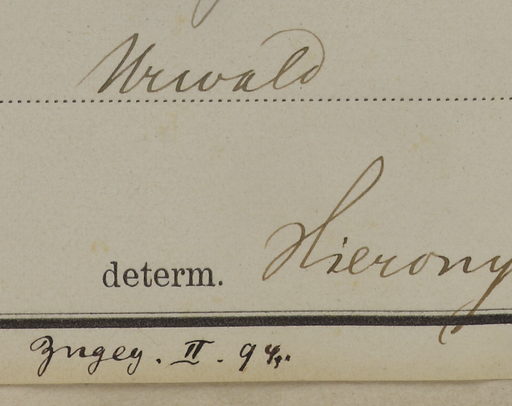 Urwald
determ. Hierony
Zngeg. II. 94.